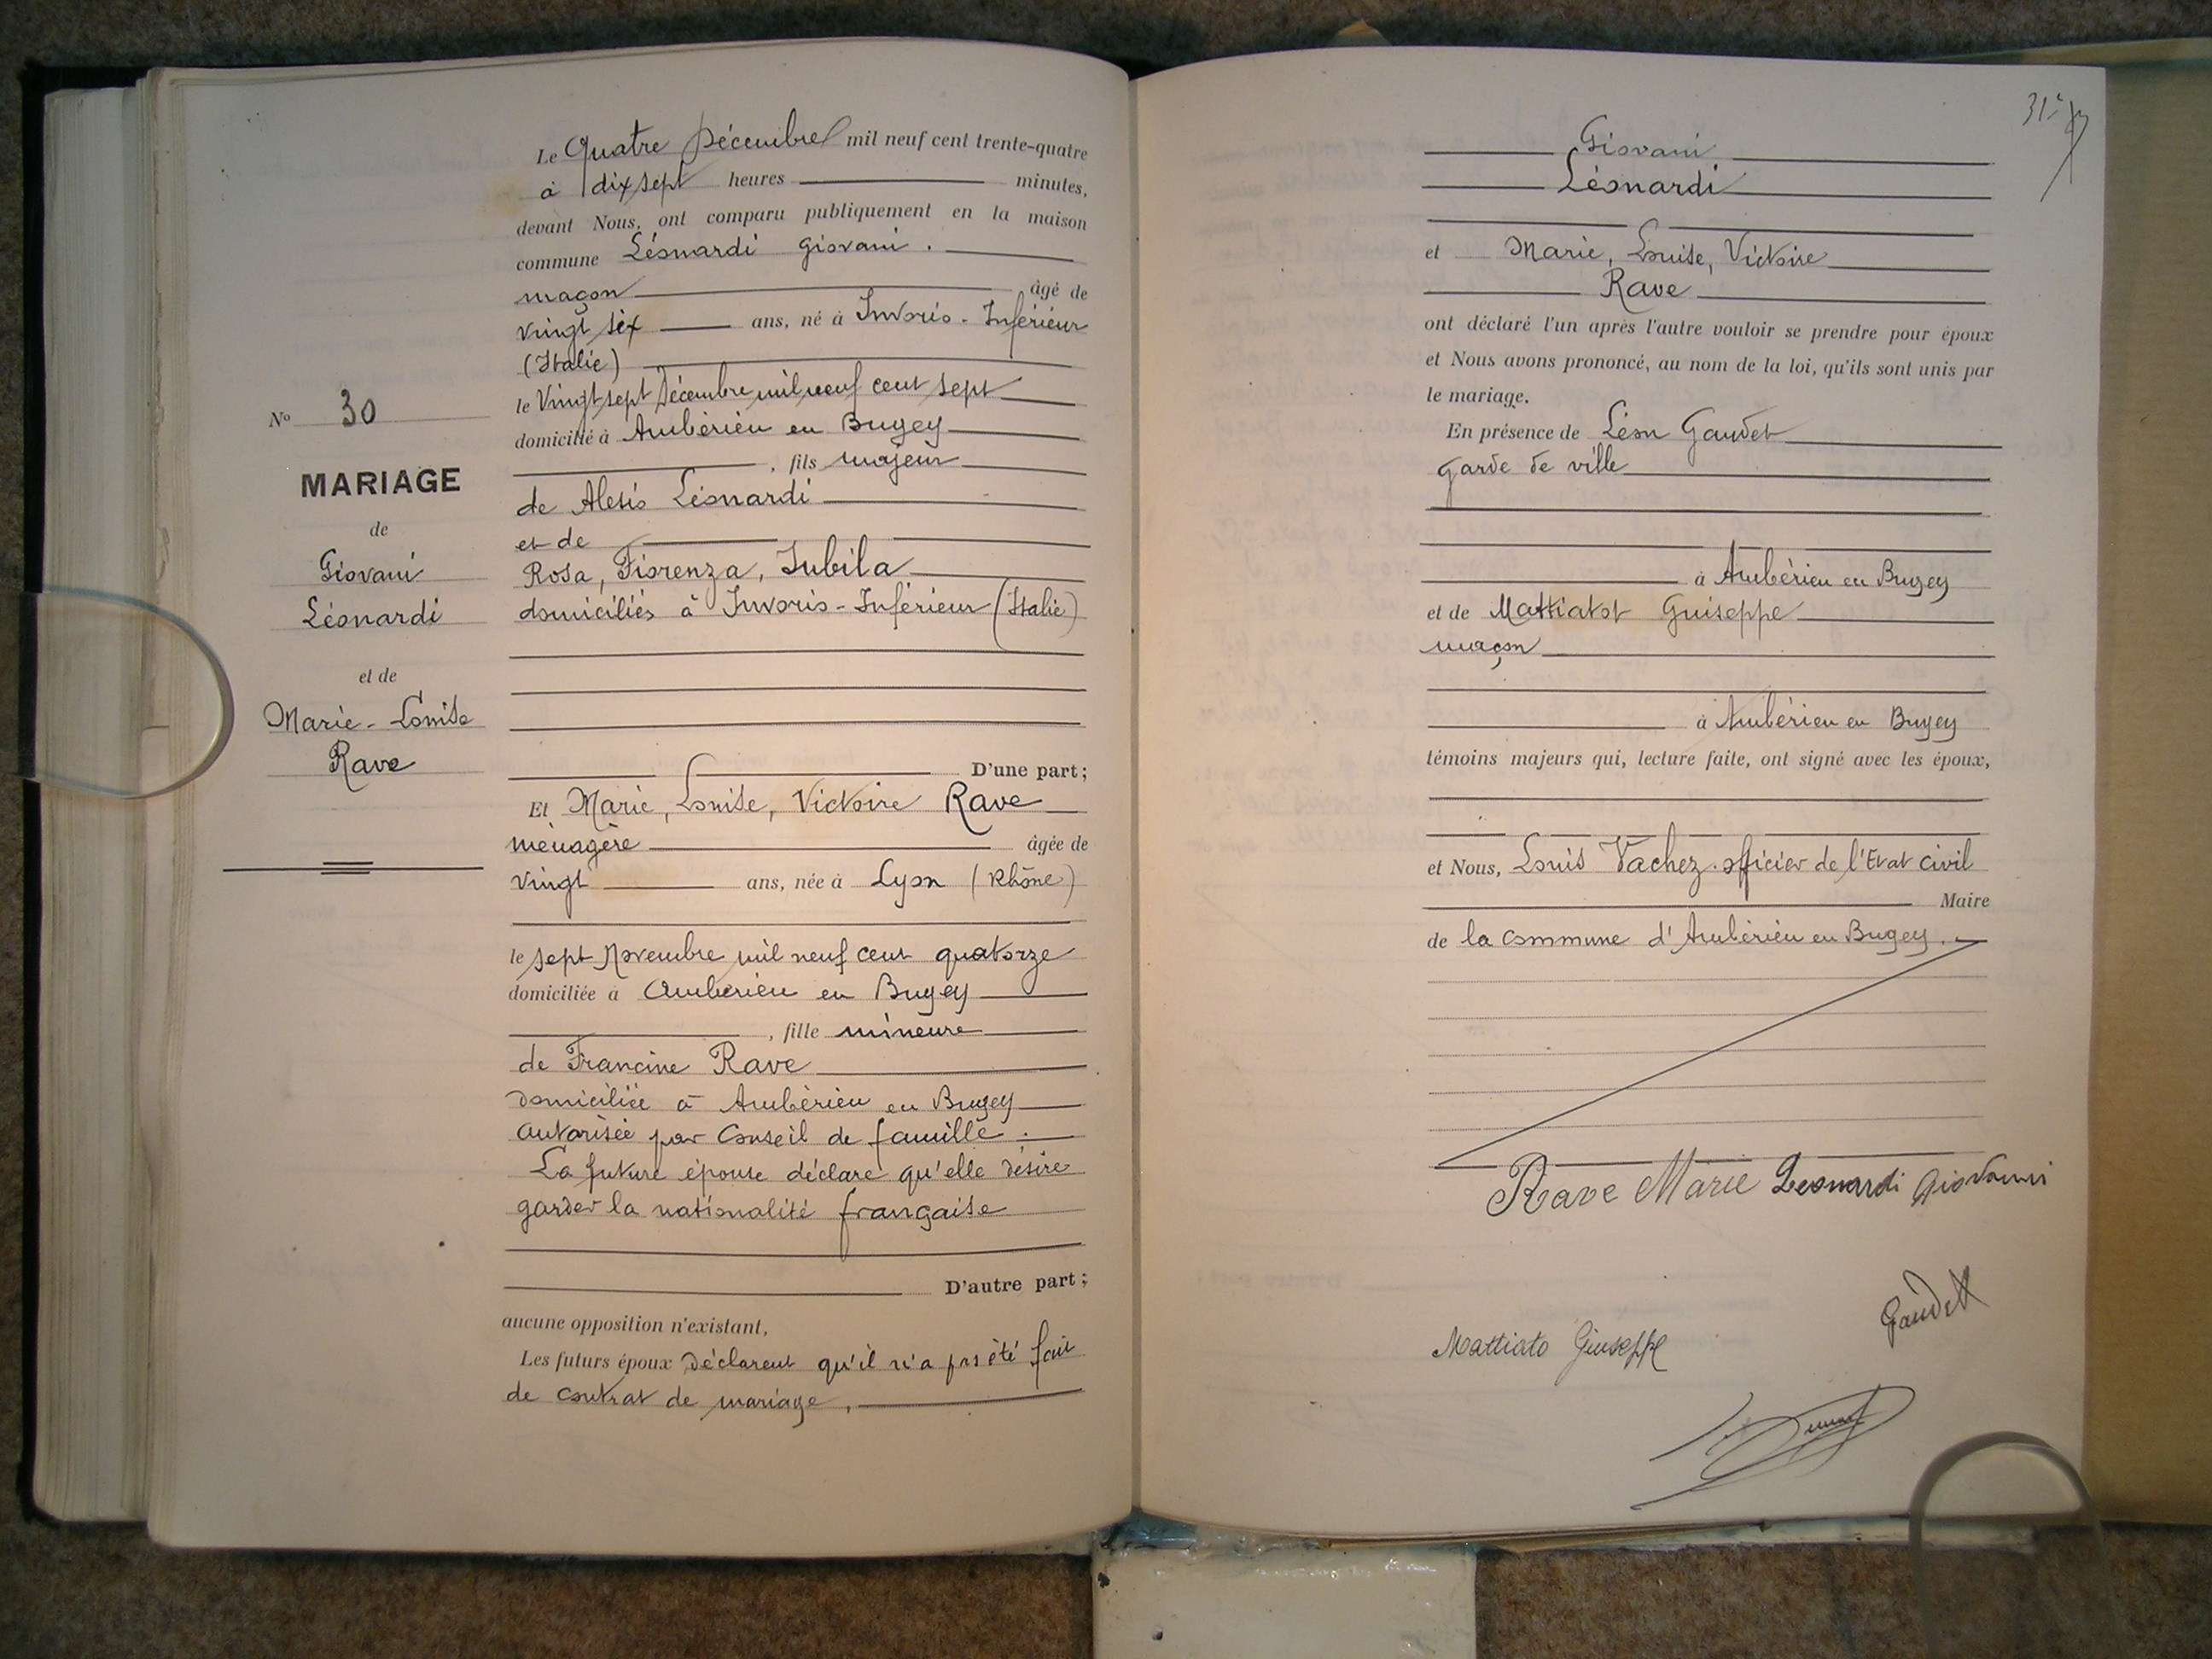 N° 30
MARIAGE
de
Giovani
Léonardi
et de
Marie-Louise
Rave
Le Quatre Décembre mil neuf cent trente-quatre
à dix sept heures minutes,
devant Nous, ont comparu publiquement en la maison
commune Léonardi Giovani.
maçon âgé de
vingt six ans, né à Invorio-Inférieur
(Italie)
le Vingt sept Décembre mil neuf cent sept
domicilié à Ambérieu en Bugey
, fils majeur
de Alesio Léonardi
et de
Rosa, Fiorenza, Jubila
domiciliés à Invorio-Inférieur (Italie)
D'une part;
Et Marie, Louise, Victoire Rave
ménagère âgée de
vingt ans, née à Lyon (Rhône)
le sept Novembre mil neuf cent quatorze
domiciliée à Ambérieu en Bugey
, fille mineure
de Francine Rave
domiciliée à Ambérieu en Bugey
autorisée par Conseil de famille.
La future épouse déclare qu'elle désire
garder la nationalité française
D'autre part;
aucune opposition n'existant,
Les futurs époux déclarent qu'il n'a pas été fait
de contrat de mariage,
31
Giovani
Léonardi
et Marie, Louise, Victoire
Rave
ont déclaré l'un après l'autre vouloir se prendre pour époux
et Nous avons prononcé, au nom de la loi, qu'ils sont unis par
le mariage.
En présence de Léon Gaudet
garde de ville
à Ambérieu en Bugey
et de Mattiatot Guiseppe
maçon
à Ambérieu en Bugey
témoins majeurs qui, lecture faite, ont signé avec les époux,
et Nous, Louis Vachez officier de l'Etat civil
Maire
de la commune d'Ambérieu en Bugey.
Rave Marie Leonardi Giovanni
Gaudet
Mattiato Giuseppe